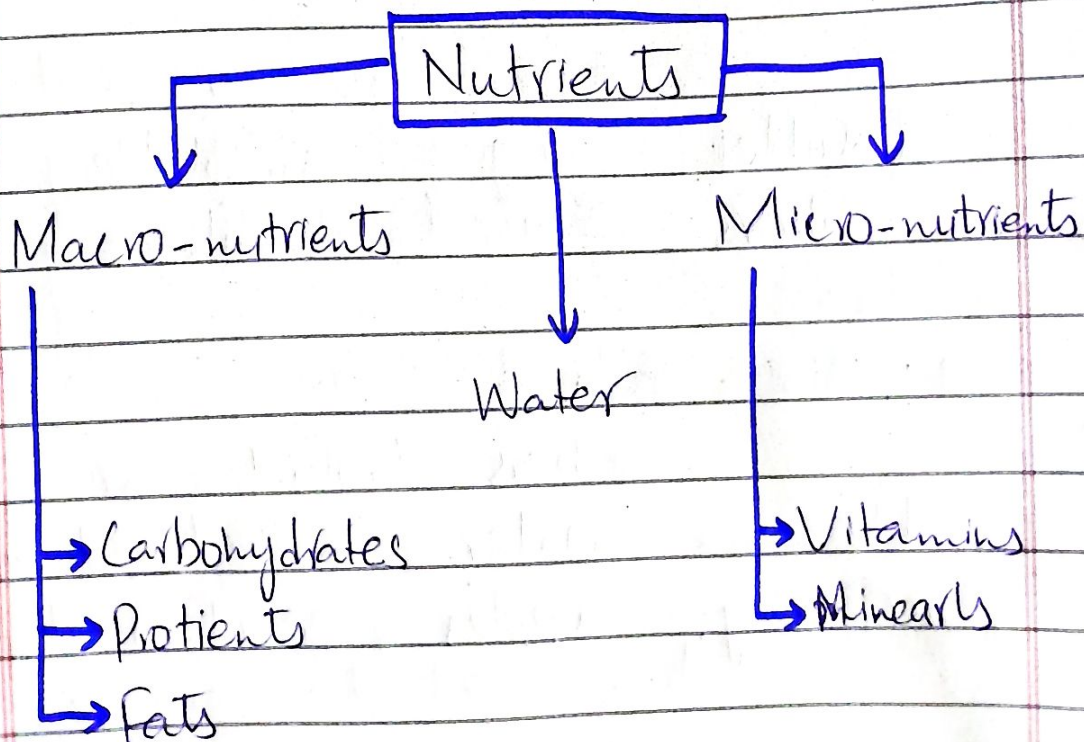 Nutrients
Macro-nutrients
Micro-nutrients
Water
Carbohydrates
Protients
Fats
Vitamins
Minearls